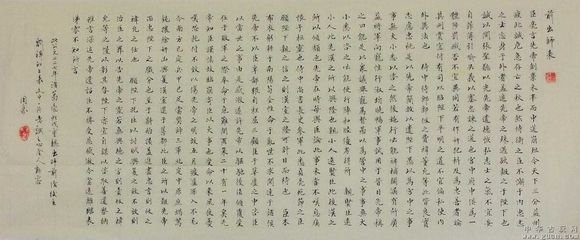 前出師表
臣亮言先帝創業未半而中道崩殂今天下三分益州
疲敝此誠危急存亡之秋也然侍衛之臣不懈於內忠志
之士忘身於外者蓋追先帝之殊遇欲報之於陛下也
誠宜開張聖聽以光先帝遺德恢弘志士之氣不宜妄
自菲薄引喻失義以塞忠諫之路也宮中府中俱為一
體陟罰臧否不宜異同若有作奸犯科及為忠善者宜付有司論
其刑賞以昭陛下平明之理不宜偏私使內
外異法也 侍中侍郎郭攸之費禕董允等此皆良實
志慮忠純是以先帝簡拔以遺陛下愚以為宮中之
事事無大小悉以咨之然後施行必能裨補闕漏有所廣
益將軍向寵性行淑均曉暢軍事試用於昔日先帝稱
之曰能是以眾議舉寵為督愚以為營中之事事無大
小悉以咨之必能使行陣和睦優劣得所 親賢臣遠
小人此先漢所以興隆也親小人遠賢臣此後漢之
所以傾頹也先帝在時每與臣論此事未嘗不嘆息痛
恨於桓靈也侍中尚書長史參軍此悉貞亮死節之臣
願陛下親之信之則漢室之隆可計日而待也 臣本
布衣躬耕於南陽苟全性命於亂世不求聞達於諸侯
先帝不以臣卑鄙猥自枉屈三顧臣於草廬之中咨臣
以當世之事由是感激遂許先帝以驅馳後值傾覆受
任於敗軍之際奉命於危難之間爾來二十有一年矣先
帝知臣謹慎故臨崩寄臣以大事也受命以來夙夜憂
嘆恐託付不效以傷先帝之明故五月渡瀘深入不毛
今南方已定兵甲已足當獎率三軍北定中原庶竭駑
鈍攘除奸凶興復漢室還於舊都此臣所以報先帝
而忠陛下之職分也至於斟酌損益進盡忠言則攸之
禕允之任也 願陛下託臣以討賊興復之效不效則
治臣之罪以告先帝之靈若無興德之言則責攸之禕
允等之慢以彰其咎陛下亦宜自謀以咨諏善道察納
雅言深追先帝遺詔臣不勝受恩感激今當遠離臨表
涕零不知所言
中华古玩网
www.gucn.com